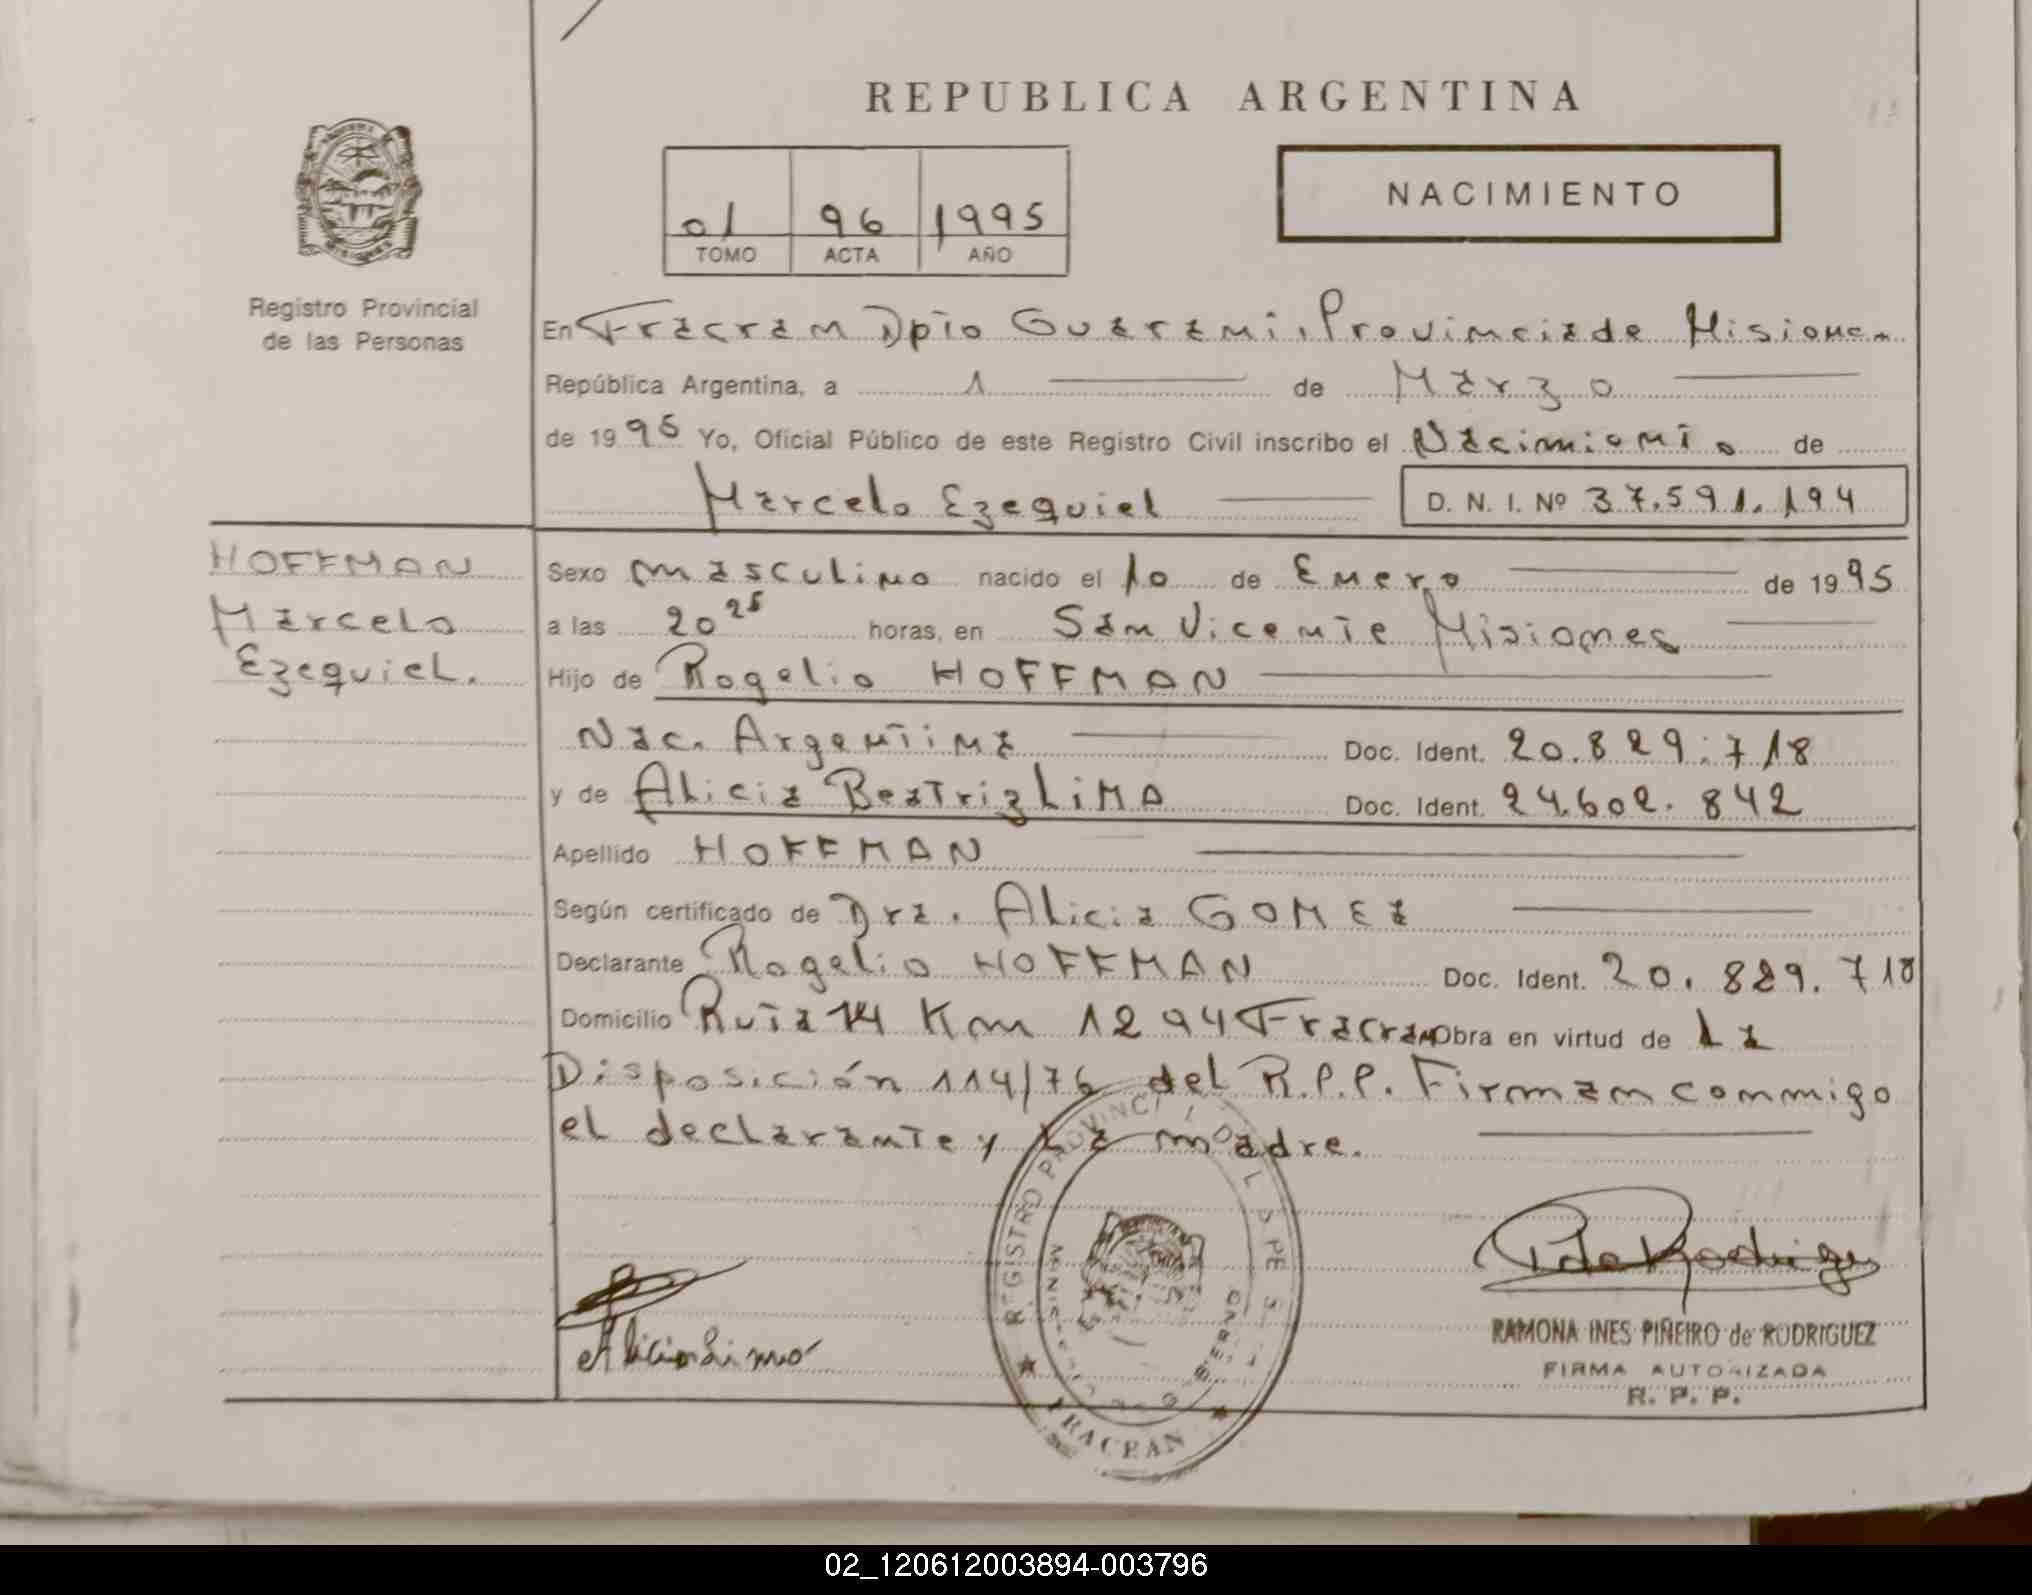 REPUBLICA ARGENTINA
NACIMIENTO
01 96 1995
TOMO ACTA AÑO
Registro Provincial
de las Personas
En Fracran Dpto Guarani, Provincia de Misiones
República Argentina, a 1 de Marzo
de 1995 Yo, Oficial Público de este Registro Civil inscribo el Nacimiento de
Marcelo Ezequiel D. N. I. Nº 37.591.194
HOFFMAN
Marcelo
Ezequiel.
Sexo masculino nacido el 10 de Enero de 1995
a las 20 25 horas, en San Vicente Misiones
Hijo de Rogelio HOFFMAN
Nac. Argentina Doc. Ident. 20.829.718
y de Alicia Beatriz LIMA Doc. Ident. 24.602.842
Apellido HOFFMAN
Según certificado de Dra. Alicia GOMEz
Declarante Rogelio HOFFMAN Doc. Ident. 20.829.718
Domicilio Ruta 14 Km 1294 Fracran Obra en virtud de la
Disposición 114/76 del R.P.P. Firman conmigo
el declarante y la madre.
REGISTRO PROVINCI L D PE S
MINIST GOBIERNO
FRACRAN
Alicia Lima
RAMONA INES PIÑEIRO de RODRIGUEZ
FIRMA AUTORIZADA
R. P. P.
02_120612003894-003796